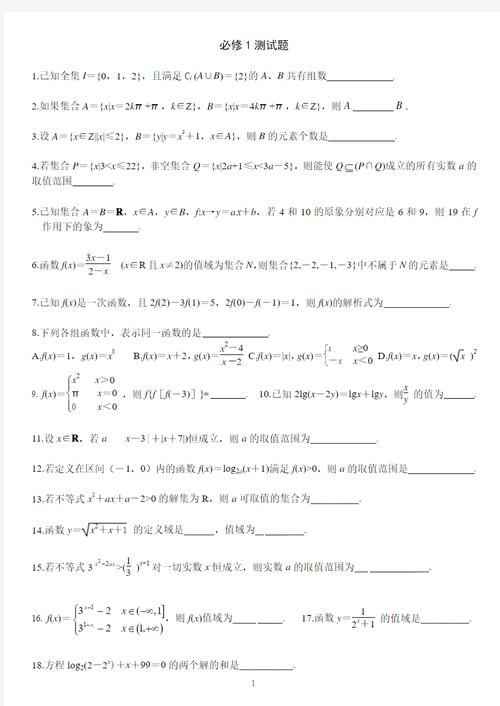 必修1测试题
1.已知全集 I={0，1，2}，且满足 C_I (A∪B)={2}的 A、B 共有组数__________.
2.如果集合 A={x|x=2kπ+π，k∈Z}，B={x|x=4kπ+π，k∈Z}，则 A ______ B .
3.设 A={x∈Z||x|≤2}，B={y|y=x²+1，x∈A}，则 B 的元素个数是__________.
4.若集合 P={x|3<x≤22}，非空集合 Q={x|2a+1≤x<3a－5}，则能使 Q⊆(P∩Q)成立的所有实数 a 的
取值范围______.
5.已知集合 A=B=R，x∈A，y∈B，f:x→y=ax+b，若 4 和 10 的原象分别对应是 6 和 9，则 19 在 f
作用下的象为______.
6.函数 f(x)=(3x－1)/(2－x) (x∈R 且 x≠2)的值域为集合 N，则集合{2,－2,－1,－3}中不属于 N 的元素是____.
7.已知 f(x)是一次函数，且 2f(2)－3f(1)=5，2f(0)－f(－1)=1，则 f(x)的解析式为__________.
8.下列各组函数中，表示同一函数的是__________.
A.f(x)=1，g(x)=x⁰ B.f(x)=x+2，g(x)=(x²－4)/(x－2) C.f(x)=|x|，g(x)={x x≥0 －x x<0 D.f(x)=x，g(x)=(√x )²
9. f(x)={x² x>0 π x=0 0 x<0 ，则 f{f［f(－3)］}=______. 10.已知 2lg(x－2y)=lgx+lgy，则x/y 的值为_____.
11.设 x∈R，若 a x－3|+|x+7|)恒成立，则 a 的取值范围为__________.
12.若定义在区间（－1，0）内的函数 f(x)=log₂ₐ(x+1)满足 f(x)>0，则 a 的取值范围是__________.
13.若不等式 x²+ax+a－2>0 的解集为 R，则 a 可取值的集合为________.
14.函数 y=√(x²+x+1) 的定义域是_____，值域为__ ______.
15.若不等式 3^(x²－2ax)>(1/3)^(x+1) 对一切实数 x 恒成立，则实数 a 的取值范围为__ ________.
16. f(x)={3^(x－1)－2 x∈(－∞,1] 3^(1－x)－2 x∈(1,+∞) ，则 f(x)值域为____ ____. 17.函数 y=1/(2^x+1) 的值域是________.
18.方程 log₂(2－2ˣ)+x+99=0 的两个解的和是________.
1